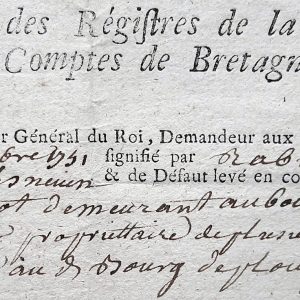 des Régiſtres de la
Comptes de Bretagn
r Général du Roi, Demandeur aux
bre 1751 ſignifié par Rab
& de Défaut levé en co
ot demeurant au bou
propriettaire de pluſie
au d Bourg de plou